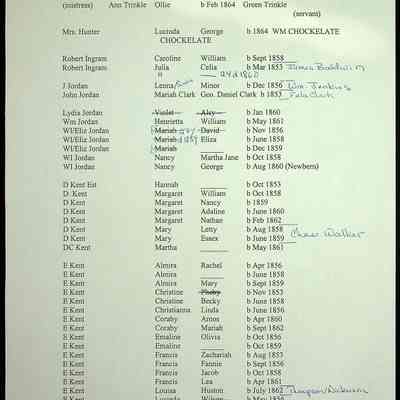 (mistress) Ann Trinkle Ollie b Feb 1864 Green Trinkle
(servant)
Mrs. Hunter Lucinda George b 1864 WM CHOCKELATE
CHOCKELATE
Robert Ingram Caroline William b Sept 1858
Robert Ingram Julia Celia b Mar 1853 James Baldwin
" — age 1860
J Jordan Leona Minor b Dec 1856 Wm. Jenkins
John Jordan Mariah Clark Geo. Daniel Clark b 1853 Pete Clark
Lydia Jordan Violet Alcy b Jan 1860
Wm Jordan Henrietta William b May 1861
WI/Eliz Jordan Mariah David b Nov 1856
WI/Eliz Jordan Mariah Eliza b June 1858
WI/Eliz Jordan Mariah ____ b Dec 1859
WI Jordan Nancy Martha Jane b Oct 1858
WI Jordan Nancy George b Aug 1860 (Newbern)
D Kent Est Hannah ____ b Oct 1853
D. Kent Margaret William b Oct 1858
D Kent Margaret Nancy b 1859
D Kent Margaret Adaline b June 1860
D Kent Margaret Nathan b Feb 1862
D Kent Mary Letty b Aug 1858
D Kent Mary Essex b June 1859 Chas Walker
DC Kent Martha ____ b May 1861
E Kent Almira Rachel b Apr 1856
E Kent Almira ____ b June 1858
E Kent Almira Mary b Sept 1859
E Kent Christine Pheby b Nov 1853
E Kent Christine Becky b June 1858
E Kent Christianna Linda b June 1856
E Kent Coraby Amos b Apr 1860
E Kent Coraby Mariah b Sept 1862
E Kent Emaline Olivia b Oct 1856
E Kent Emaline ____ b Oct 1859
E Kent Francis Zachariah b Aug 1853
E Kent Francis Fannie b Sept 1856
E Kent Francis Jacob b Oct 1858
E Kent Francis Lea b Apr 1861
E Kent Louisa Huston b July 1862
E Kent Lucinda Wilson b May 1856